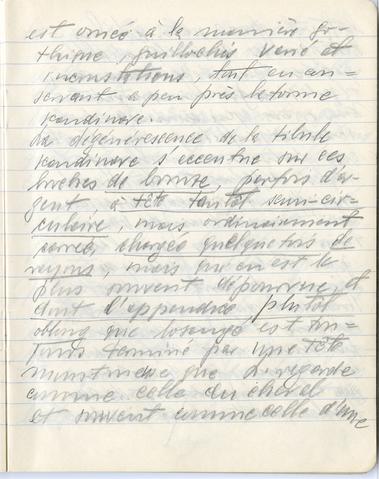 est orné à la manière go-
thique, guillochis varié et
incrustations, tout en con-
servant à peu près la forme
scandinave.
La dégénérescence de la fibule
scandinave s'accentue sur ces
broches de bronze, parfois d'ar-
gent à tête tantôt semi-cir-
culaire, mais ordinairement
carrée, chargée quelquefois de
rayons, mais qui en est le
plus souvent dépourvue, et
dont l'appendice, plutôt
oblong que losangé est
terminé par une tête
monstrueuse que l'on regarde
comme celle du cheval
et souvent comme celle d'une